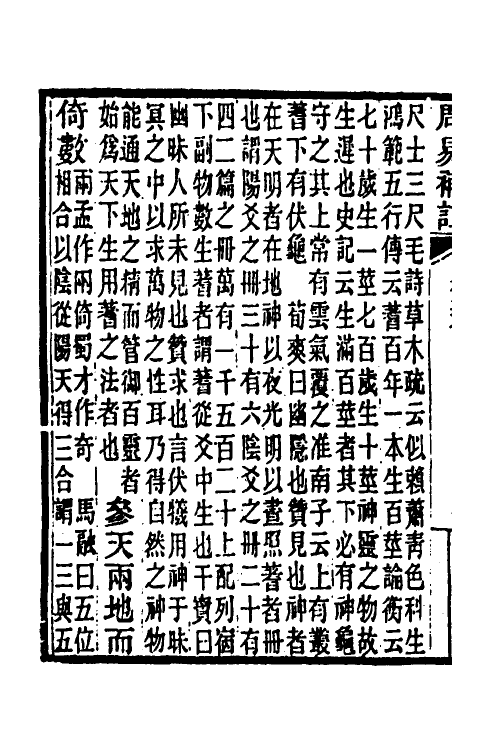 周易
尺士三尺毛詩草木疏云似藾蕭青色科生
鴻範五行傳云蓍百年一本生百莖論衡云
七十歲生一莖七百歲生十莖神靈之物故
生遲也史記云生滿百莖者其下必有神龜
守之其上常有雲氣覆之淮南子云上有叢
蓍下有伏龜　荀爽曰幽隱也贊見也神者
在天明者在地神以夜光明以晝照蓍者冊
也謂陽爻之冊三十有六陰爻之冊二十有
四二篇之冊萬有一千五百二十上配列宿
下副物數生蓍者謂蓍從爻中生也干寶曰
幽昧人所未見也贊求也言伏犧用神于昧
冥之中以求萬物之性耳乃得自然之神物
能通天地之精而管御百靈者
始爲天下生用蓍之法者也
參天兩地而
倚數
兩孟作㒳倚蜀才作奇　馬融曰五位
相合以陰從陽天得三合謂一三與五